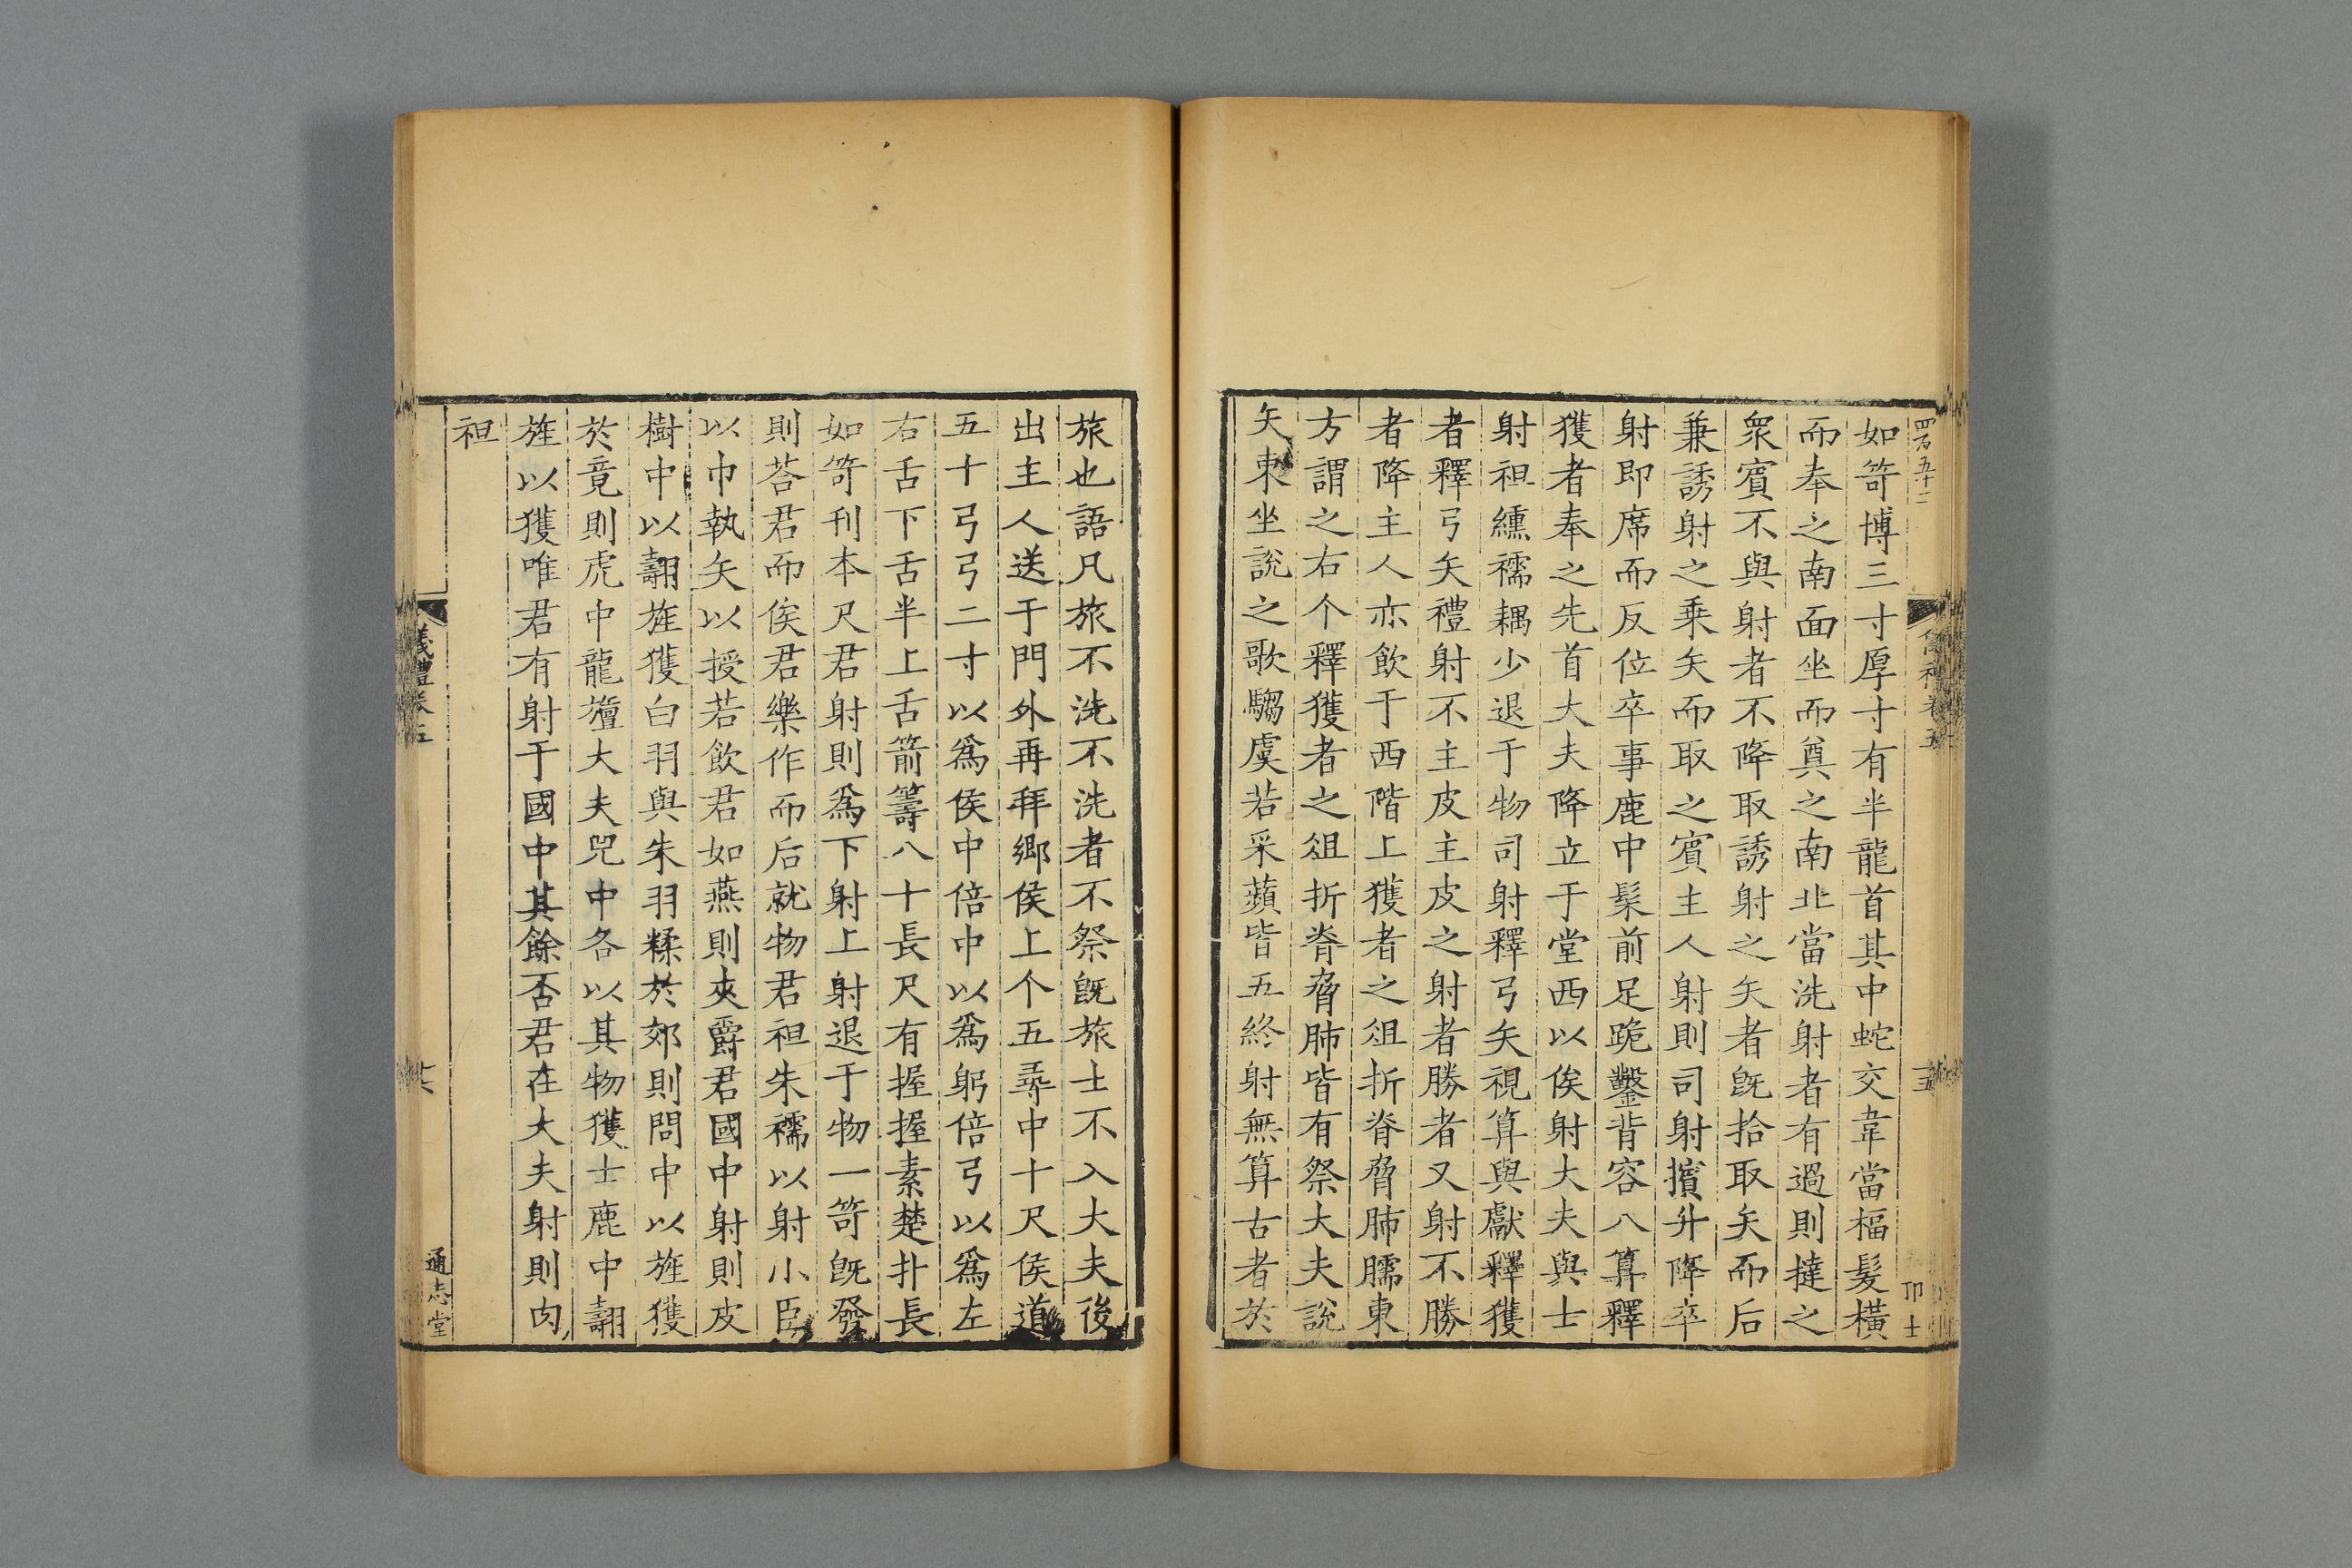 四百五十二
儀禮卷五
十五
如笴博三寸厚寸有半龍首其中蛇交韋當楅髮橫
而奉之南面坐而奠之南北當洗射者有過則撻之
衆賓不與射者不降取誘射之矢者旣拾取矢而后
兼誘射之乘矢而取之賓主人射則司射擯升降卒
射即席而反位卒事鹿中髤前足跪鑿背容八算釋
獲者奉之先首大夫降立于堂西以俟射大夫與士
射袒纁襦耦少退于物司射釋弓矢視算與獻釋獲
者釋弓矢禮射不主皮主皮之射者勝者又射不勝
者降主人亦飲于西階上獲者之俎折脊脅肺臑東
方謂之右个釋獲者之俎折脊脅肺皆有祭大夫說
矢束坐說之歌騶虞若采蘋皆五終射無算古者於
旅也語凡旅不洗不洗者不祭旣旅士不入大夫後
出主人送于門外再拜鄉侯上个五尋中十尺侯道
五十弓弓二寸以爲侯中倍中以爲躬倍弓以爲左
右舌下舌半上舌箭籌八十長尺有握握素楚扑長
如笴刊本尺君射則爲下射上射退于物一笴旣發
則荅君而俟君樂作而后就物君袒朱襦以射小臣
以巾執矢以授若飲君如燕則夾爵君國中射則皮
樹中以翿旌獲白羽與朱羽糅於郊則閭中以旌獲
於竟則虎中龍旜大夫兕中各以其物獲士鹿中翿
旌以獲唯君有射于國中其餘否君在大夫射則肉
袒
儀禮卷五
十六
通志堂